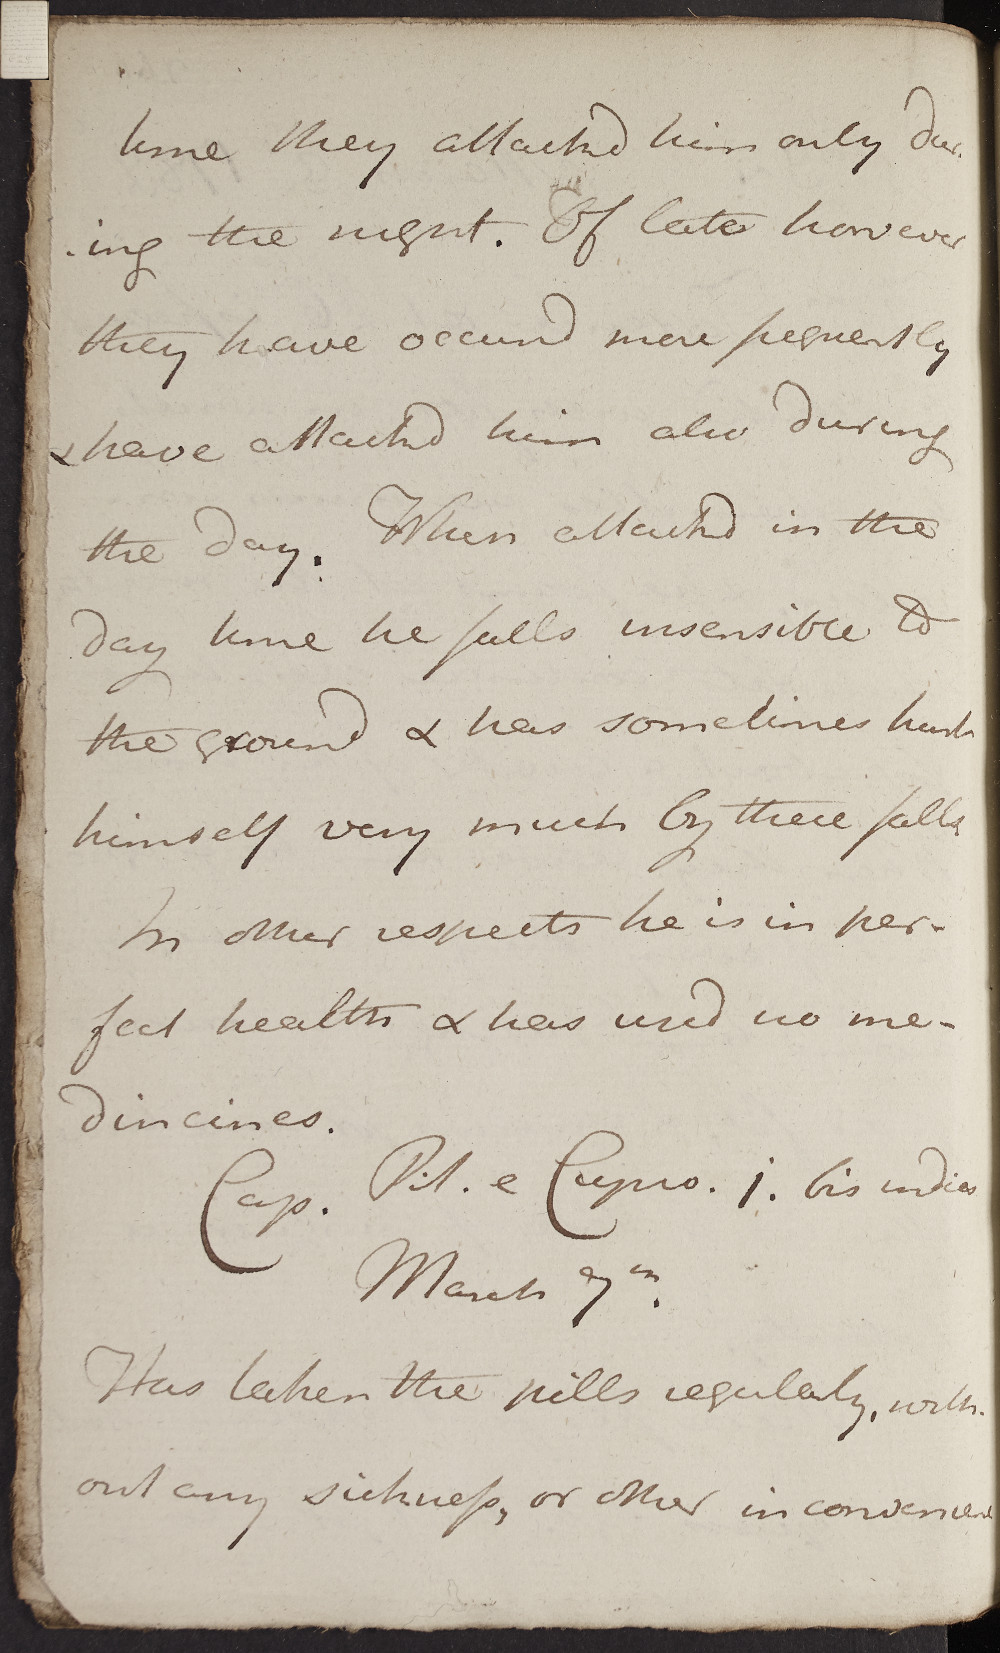 time they attackd him only dur-
-ing the night. Of late however
they have occurd more frequently
& have attackd him also during
the day. When attackd in the
day time he falls insensible to
the ground & has sometimes hurt
himself very much by these falls
In other respects he is in per-
fect health & has used no me-
dincines.
Cap. Pil. e Cupro. j. bis indies
March 7th.
Has taken the pills regularly, with-
out any sickness, or other inconvenience